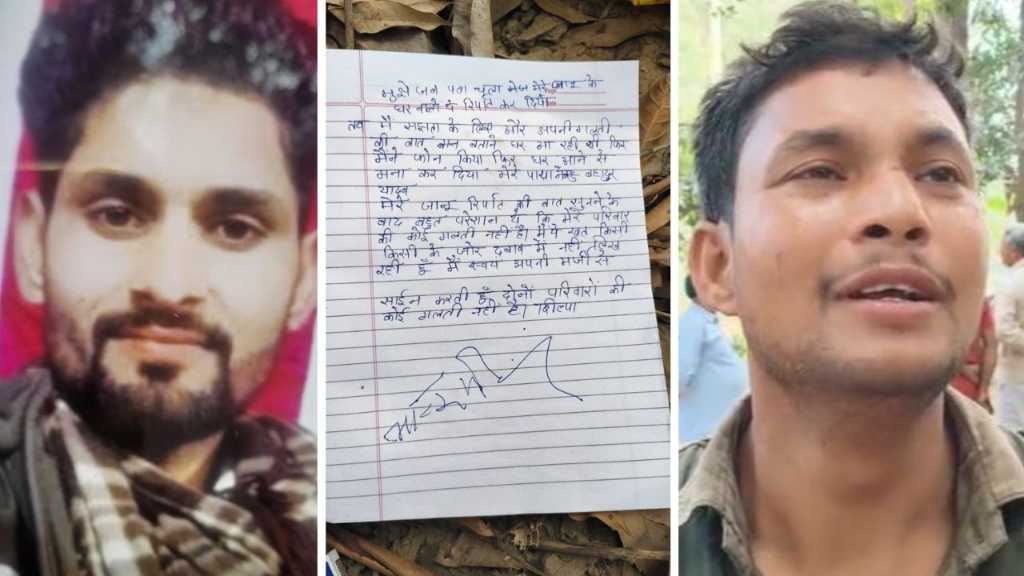 मुझे जब पता चला मेरे के
घर वालों ने रिर्पोट कर दिया
तब मैं सहारा के लिए और अपनी गलती
की बात बताने घर आ रही थी फिर
मैंने फोन किया फिर घर आने से
मना कर दिया मेरे पापा बहादुर
यादव
मेरे रिर्पोट की बात सुनने के
बाद बहुत परेशान थे कि मेरे परिवार
की कोई गलती नहीं है। मैंने खत किसी
किसी के जोर दबाव में नहीं लिख
रही हूँ मैं स्वयं अपनी मर्जी से
साईन करती हूँ दोनों परिवारों की
कोई गलती नहीं है। शिल्पा